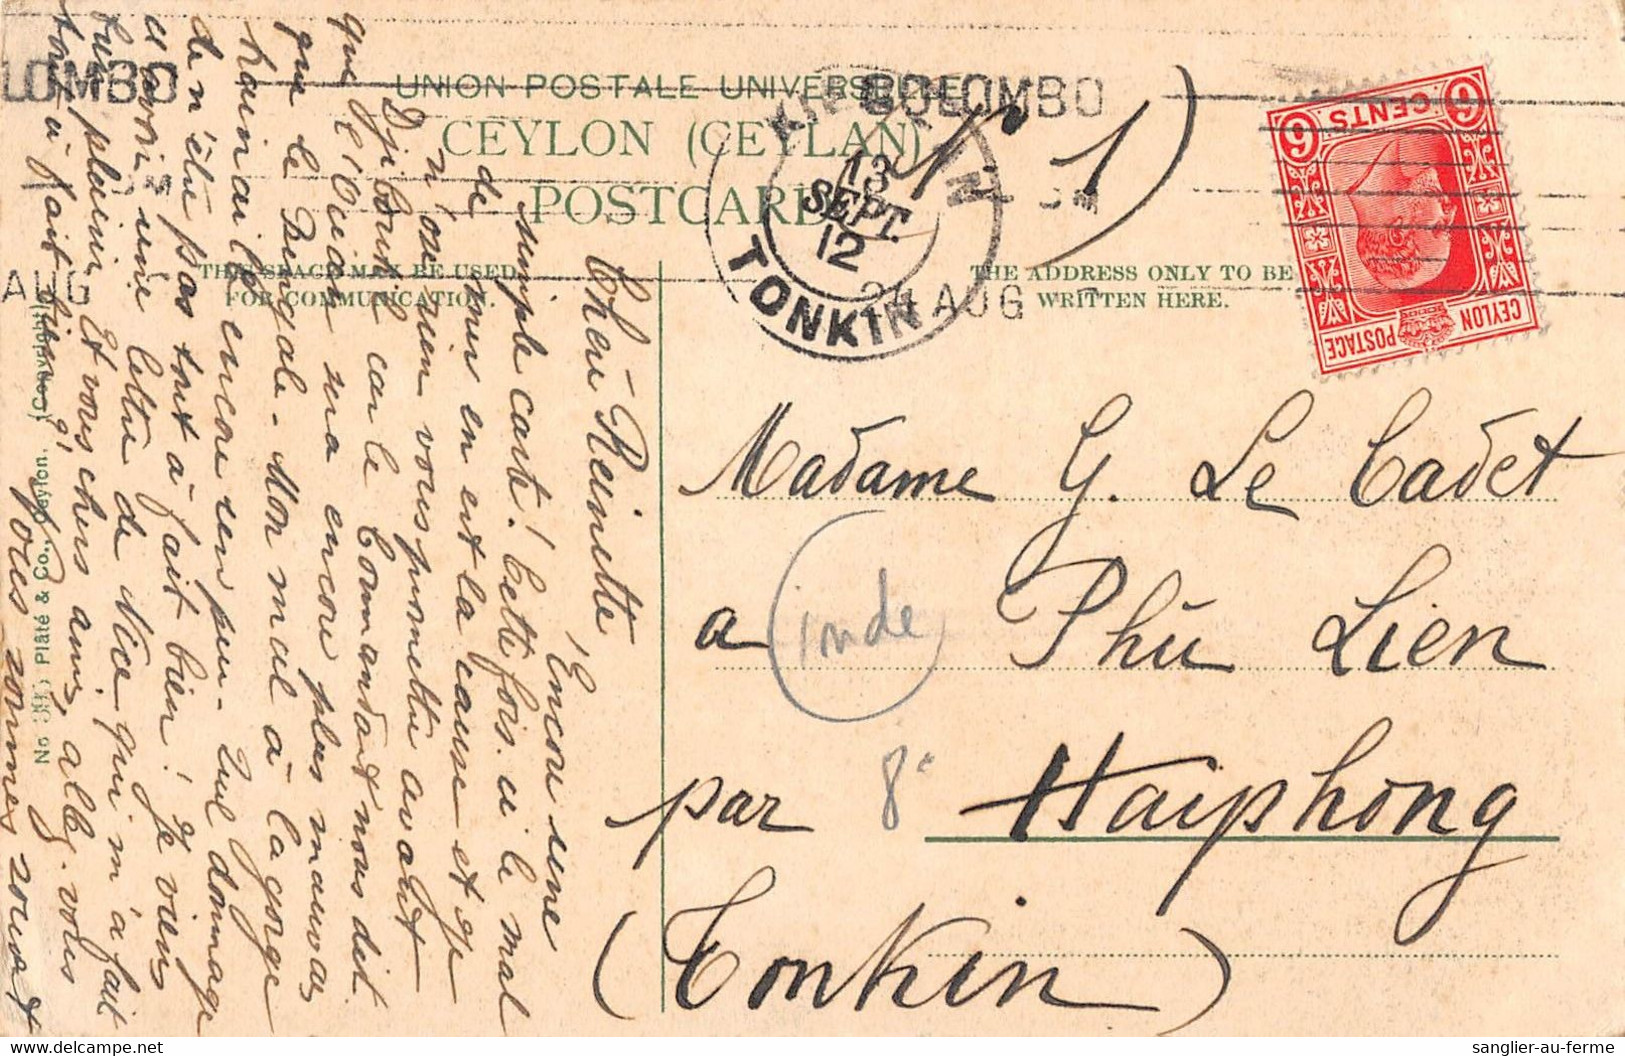 UNION POSTALE UNIVERSELLE
CEYLON (CEYLAN)
POSTCARD
THIS SPACE MAY BE USED
FOR COMMUNICATION.
THE ADDRESS ONLY TO BE
WRITTEN HERE.
COLOMBO
LOMBO
24 AUG
AUG
13
SEPT
12
TONKIN
6 CENTS 6
CEYLON POSTAGE
No 1
Madame G. Le Cadet
a Phu Lien
par Haiphong
(Tonkin)
inde
8e
Chère Reinette
Encore une
simple carte! Cette fois-ci le mal
de mer en est la cause et je
n'ose rien vous promettre avant
Djibouti car le Commandant nous dit
que l'Océan sera encore plus mauvais
que le Bengale. Mon mal à la gorge
encore un peu. Quel dommage
de n'être pas tout à fait bien! Je viens
d'avoir une lettre de Nice qui m'a fait
bien plaisir. Et vous, chers amis, allez-vous
tout à fait bien?
No 393 Plâté & Co., Ceylon. (Copyright)
sanglier-au-ferme